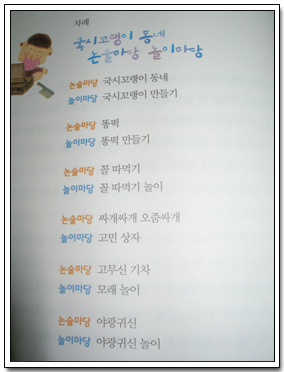 차례
국시꼬랭이 동네
논술마당 놀이마당
논술마당 국시꼬랭이 동네
놀이마당 국시꼬랭이 만들기
논술마당 똥떡
놀이마당 똥떡 만들기
논술마당 꼴 따먹기
놀이마당 꼴 따먹기 놀이
논술마당 싸개싸개 오줌싸개
놀이마당 고민 상자
논술마당 고무신 기차
놀이마당 모래 놀이
논술마당 야광귀신
놀이마당 야광귀신 놀이